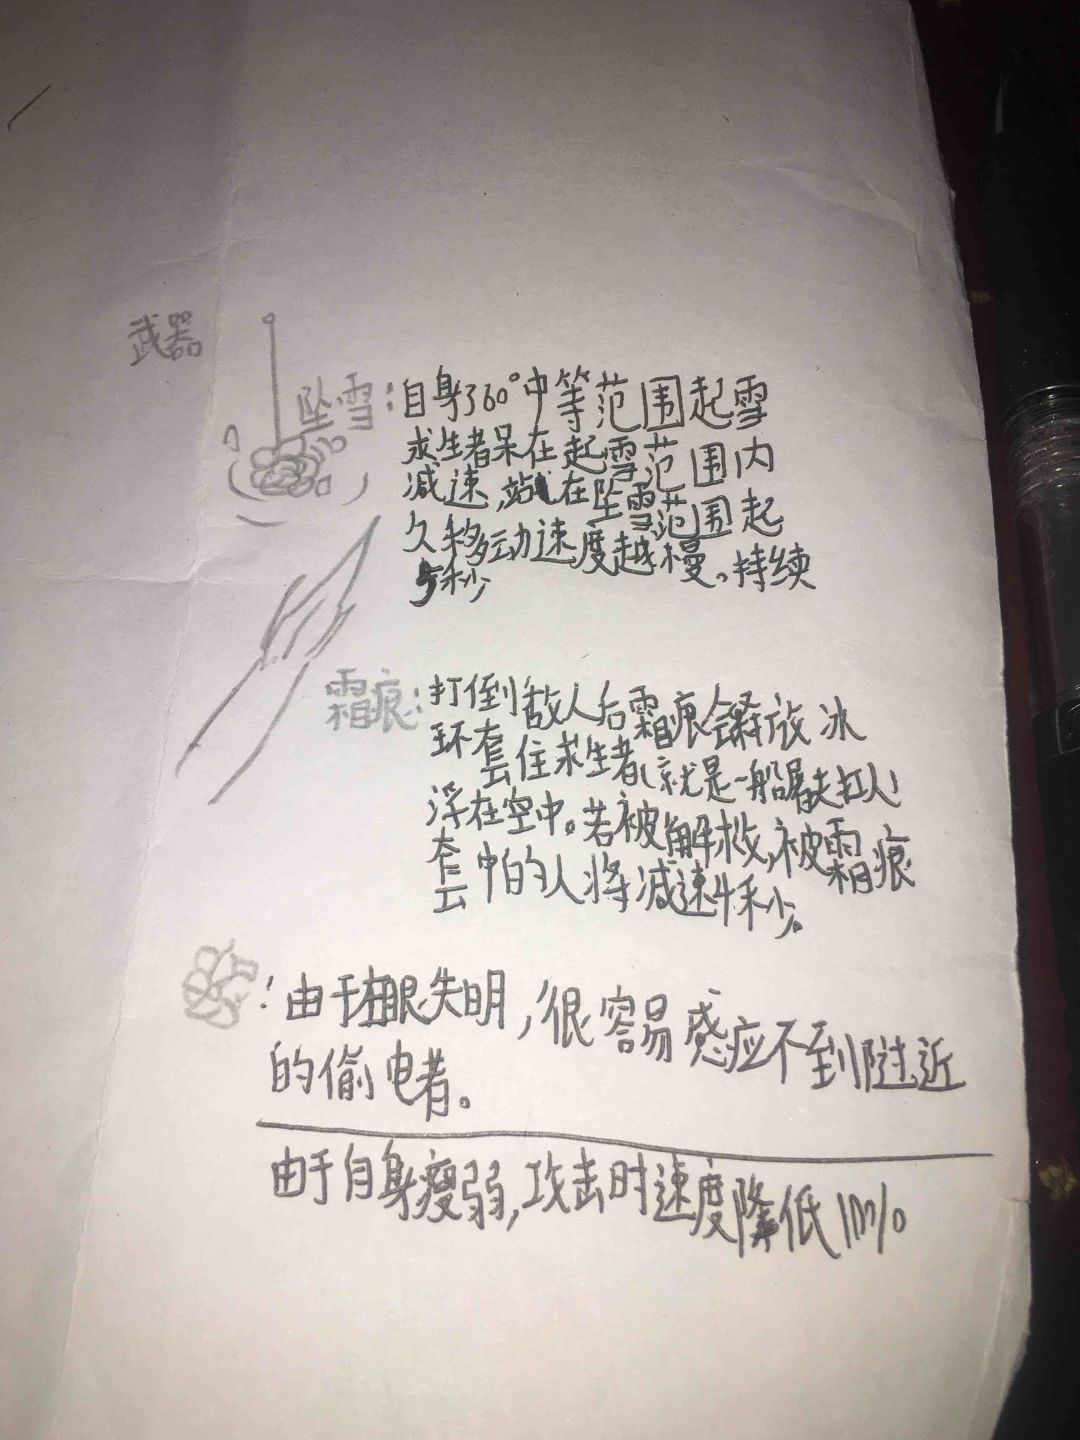 武器
坠雪:自身360°中等范围起雪
求生者呆在起雪范围内
减速,站在坠雪范围起
久移动速度越慢。持续
5秒
霜痕:打倒敌人后霜痕会释放冰
环套住求生者(就是一般屠夫扛人)
浮在空中。若被解救,被霜痕
套中的人将减速4秒。
:由于左眼失明,很容易感应不到附近
的偷电者。
由于自身瘦弱,攻击时速度降低10%